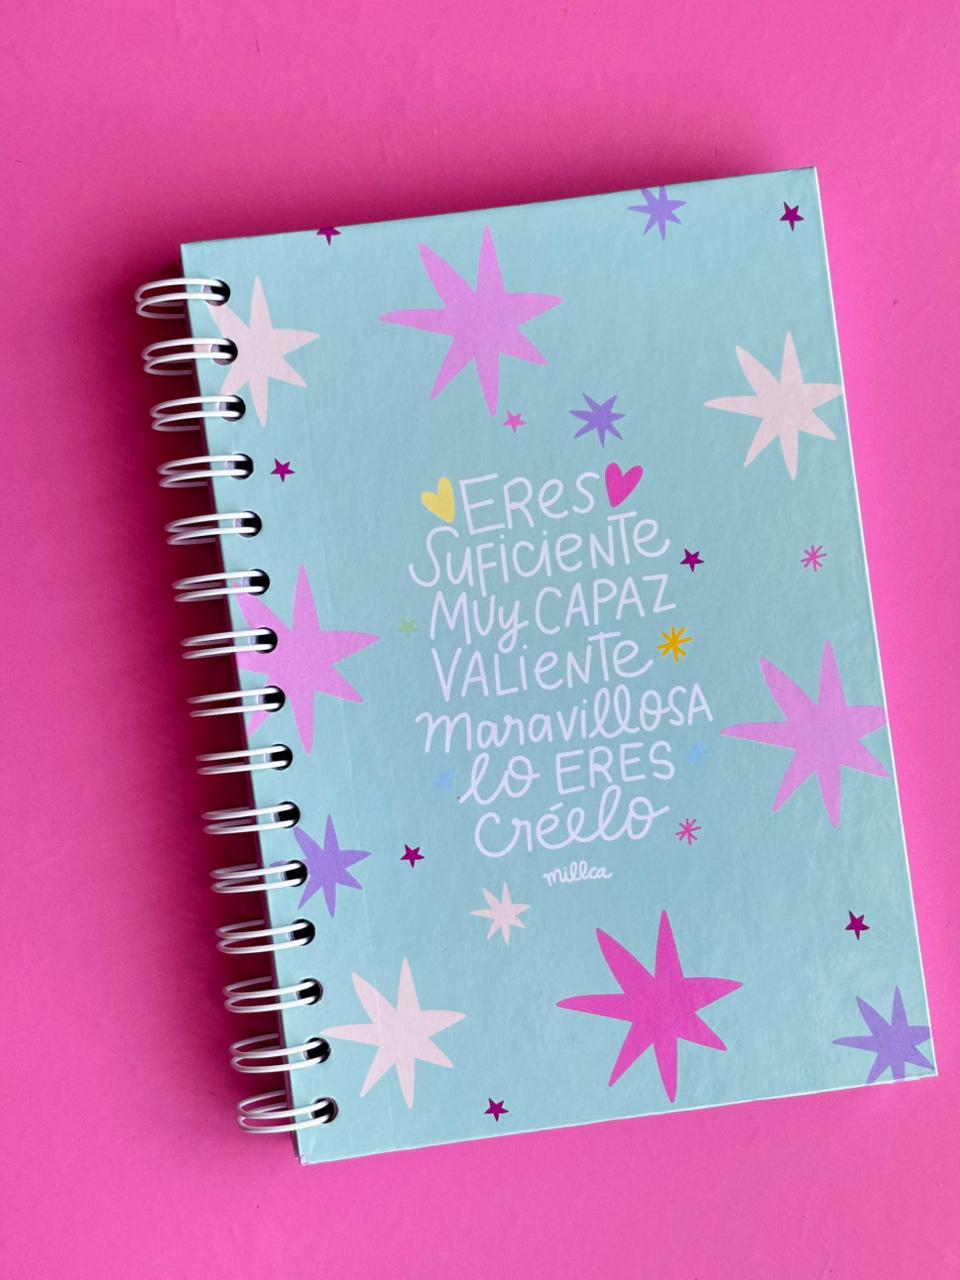 ERes
SuFicieNTe
MUy CAPAZ
VALieNTe
maravillosA
lo ERES
créelo
millca